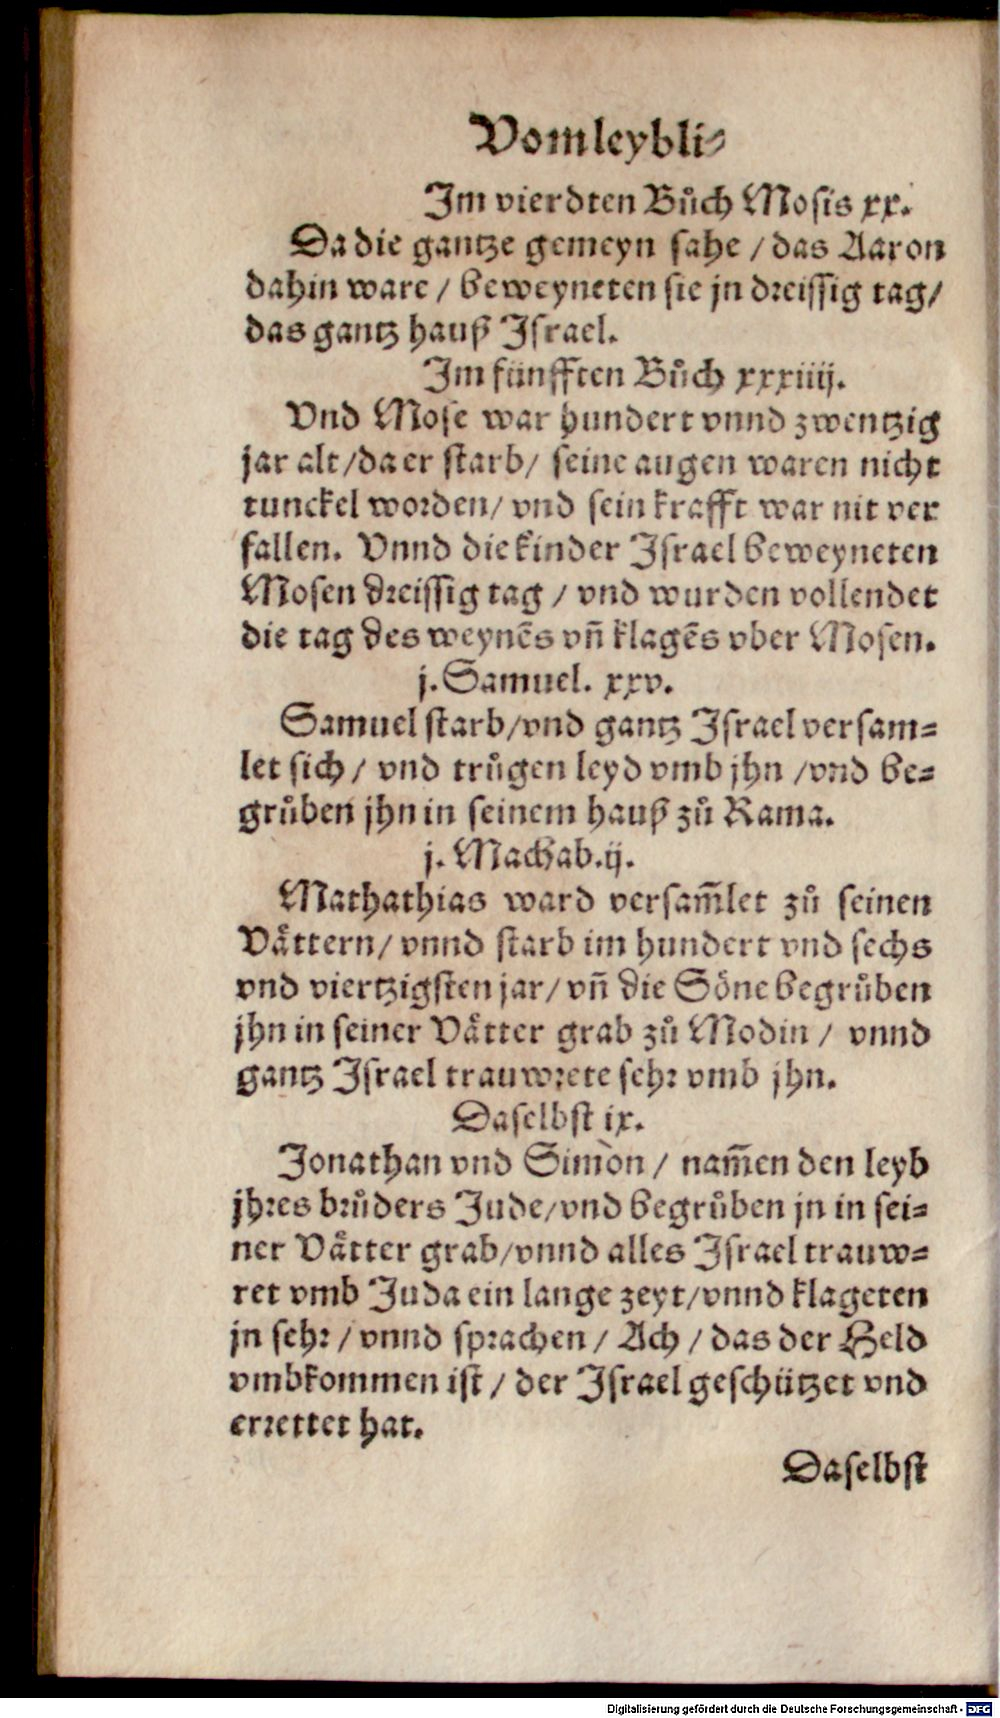 Vom leybli-
Im vierdten Bůch Mosis xx.
Da die gantze gemeyn sahe / das Aaron
dahin ware / beweyneten sie jn dreissig tag/
das gantz hauß Israel.
Im fünfften Bůch xxxiiij.
Vnd Mose war hundert vnnd zwentzig
jar alt/da er starb/ seine augen waren nicht
tunckel worden/ vnd sein krafft war nit ver
fallen. Vnnd die kinder Israel beweyneten
Mosen dreissig tag / vnd wurden vollendet
die tag des weynēs vñ klagēs vber Mosen.
j. Samuel. xxv.
Samuel starb/vnd gantz Israel versam-
let sich / vnd trůgen leyd vmb jhn /vnd be-
grůben jhn in seinem hauß zů Rama.
j. Machab.ij.
Mathathias ward versam̄let zů seinen
Vaͤttern/ vnnd starb im hundert vnd sechs
vnd viertzigsten jar/ vñ die Soͤne begrůben
jhn in seiner Vaͤtter grab zů Modin / vnnd
gantz Israel trauwrete sehr vmb jhn.
Daselbst ix.
Jonathan vnd Simon / nam̄en den leyb
jhres brůders Jude/vnd begrůben jn in sei-
ner Vaͤtter grab/vnnd alles Israel trauw-
ret vmb Juda ein lange zeyt/vnnd klageten
jn sehr / vnnd sprachen / Ach / das der Held
vmbkommen ist / der Israel geschützet vnd
errettet hat.
Daselbst
Digitalisierung gefördert durch die Deutsche Forschungsgemeinschaft - DFG